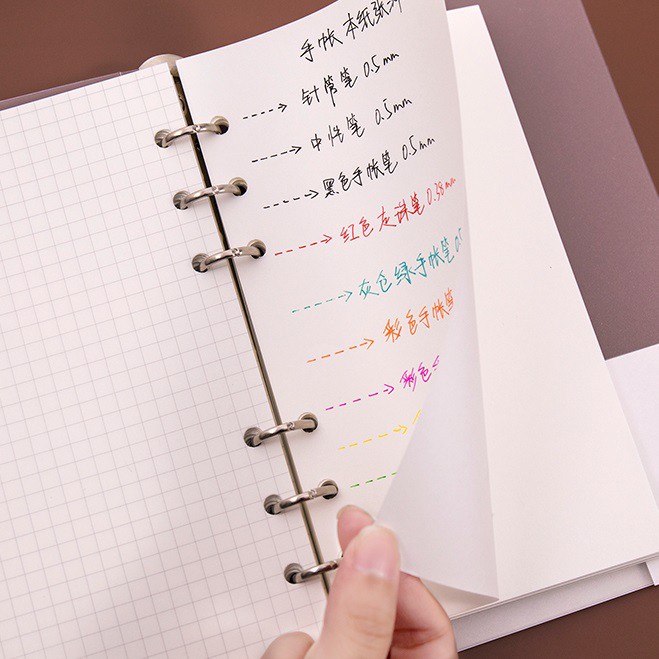 手帐本纸张
针管笔 0.5mm
中性笔 0.5mm
黑色手帐笔 0.5mm
红色走珠笔 0.38mm
灰色绿手帐笔 0.5
彩色手帐笔
彩色